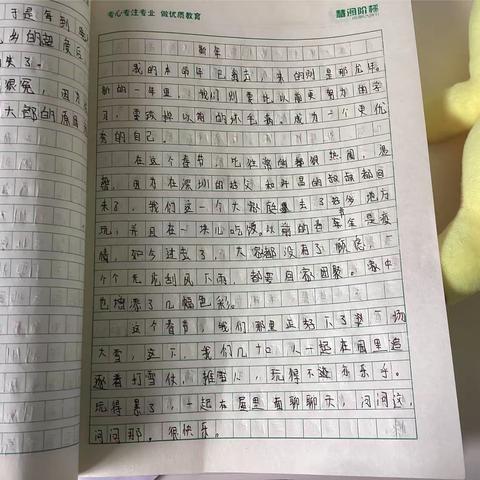 专心专注专业 做优质教育
慧润阶梯
新年
我的本命年已离去，来的则是那龙年。
新的一年里，我们则要比以前更努力的学
习，要改掉以前的坏毛病。成为一个更优
秀的自己。
在这个春节，比往常的 热闹，
，因为在深圳的 和 昌的叔叔都回
来了，我们这一个大家庭 去了好多地方
玩，并且在一块儿吃饭。以前的春年全是疫
情，如今过去了，大家都没有了顾虑，
个个无论刮风下雨，都要回家团聚。家中
也增添了几幅色彩。
这个春节，我们那里正好下了 一场
大雪，这下，我们几十口人一起在园里追
逐着打雪仗，堆雪人，玩得不 乐乎。
玩得累了，一起在屋里面聊聊天，问问这，
问问那。很快乐。
于是每到
的
来了。
，因为
大 的原